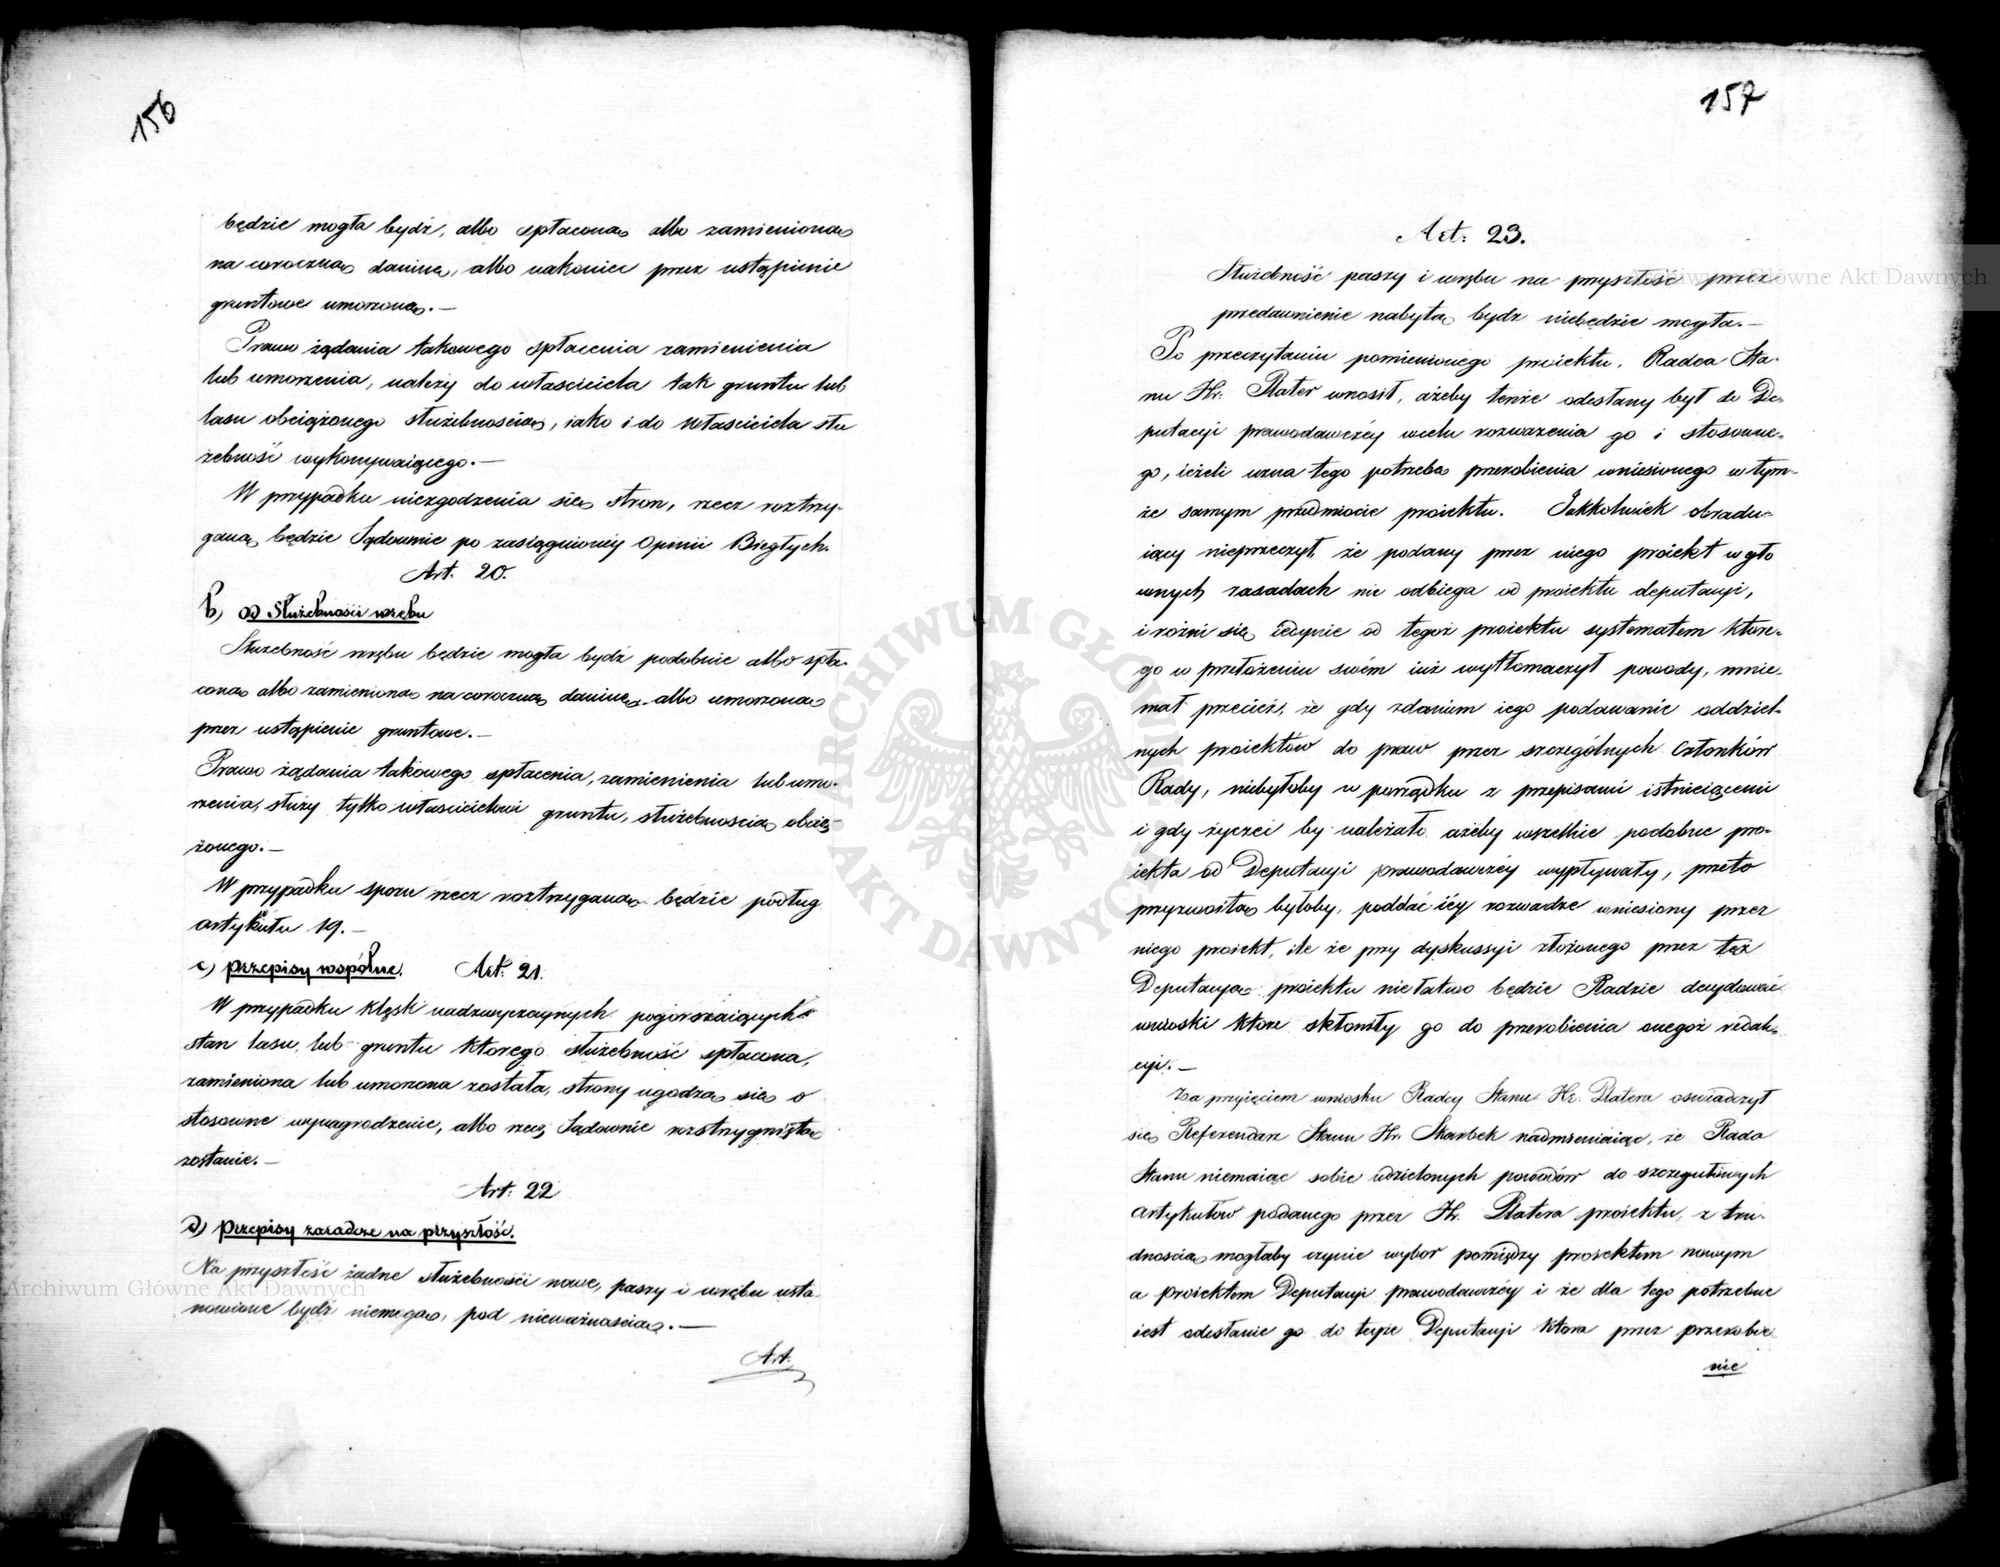 156
będzie mogła bydź, albo spłacona albo zamieniona
na coroczną daninę, albo nakoniec przez ustąpienie
gruntowe umorzona.—
Prawo żądania takowego spłacenia zamienienia
lub umorzenia, należy do właściciela tak gruntu lub
lasu obciążonego służebnością, iako i do właściciela słu
żebność wykonywaiącego.—
W przypadku niezgodzenia się stron, rzecz roztrzy-
ganą będzie Sądownie po zasiągnioney Opinii Biegłych.
Art. 20.
b) od Służebności wrębu
Służebność wrębu będzie mogła bydź podobnie albo spła-
cona albo zamieniona na coroczną daninę albo umorzona
przez ustąpienie gruntowe.—
Prawo żądania takowego spłacenia, zamienienia lub umo-
rzenia, służy tylko właścicielowi gruntu, służebnością obcią-
żonego.—
W przypadku sporu rzecz roztrzygana będzie podług
artykułu 19.—
c) Przepisy wspólne. Art. 21.
W przypadku klęsk nadzwyczaynych pogorszaiących
stan lasu, lub gruntu którego służebność spłacona,
zamieniona lub umorzona została, strony ugodzą się o
stosowne wynagrodzenie, albo rzecz Sądownie rozstrzygniętą
zostanie.—
Art: 22
d) Przepisy zasadcze na przyszłość.
Na przyszłość żadne służebności nowe, paszy i wrębu usta-
nowione bydź niemogą, pod nieważnością.—
Art.
157
Art: 23.
Służebność paszy i wrębu na przyszłość przez
przedawnienie nabytą bydź niebędzie mogła.—
Po przeczytaniu pomienionego proiektu, Radca Sta-
nu Hr. Plater wnosił, ażeby tenże odesłany był do De-
putacyi prawodawczéy wcelu rozważenia go i stosowne-
go, ieżeli uzna tego potrzebę przerobienia wniesionego w tym-
że samym przedmiocie proiektu. Jakkolwiek obradu-
iący nieprzeczył że podany przez niego proiekt w gło
wnych zasadach nie odbiega od proiektu deputacyi,
i różni się iedynie od tegoż proiektu systematem które-
go w przełożeniu swém iuż wytłomaczył powody, mnie-
mał przecież, że gdy zdaniem iego podawanie oddziel-
nych proiektów do praw przez szczególnych Członków
Rady, niebyłoby w porządku z przepisami istnieiącemi
i gdy życzeć by należało ażeby wszelkie podobne pro-
iekta od Deputacyi prawodawczéy wypływały, przeto
przyzwoitą byłoby, poddać iéy rozwadze wniesiony przez
niego proiekt, ile że przy dyskussyi złożonego przez też
Deputacyą proiektu nie łatwo będzie Radzie decydować
wnioski które skłoniły go do przerobienia onegoż redak-
cyi.—
Za przyięciem wniosku Radcy Stanu Hr. Platera oświadczył
się Referendarz Stanu Hr. Skarbek nadmieniaiąc, że Rada
Stanu niemaiąc sobie udzielonych powodów do szczegułowych
artykułów podanego przez Hr. Platera proiektu, z tru-
dnością mogłaby czynić wybór pomiędzy proiektem nowym
a proiektem Deputacyi prawodawczéy i że dla tego potrzebne
iest odesłanie go do teyże Deputacyi która przez przerobie
nie
Archiwum Główne Akt Dawnych
Archiwum Główne Akt Dawnych
ARCHIWUM GŁÓWNE AKT DAWNYCH